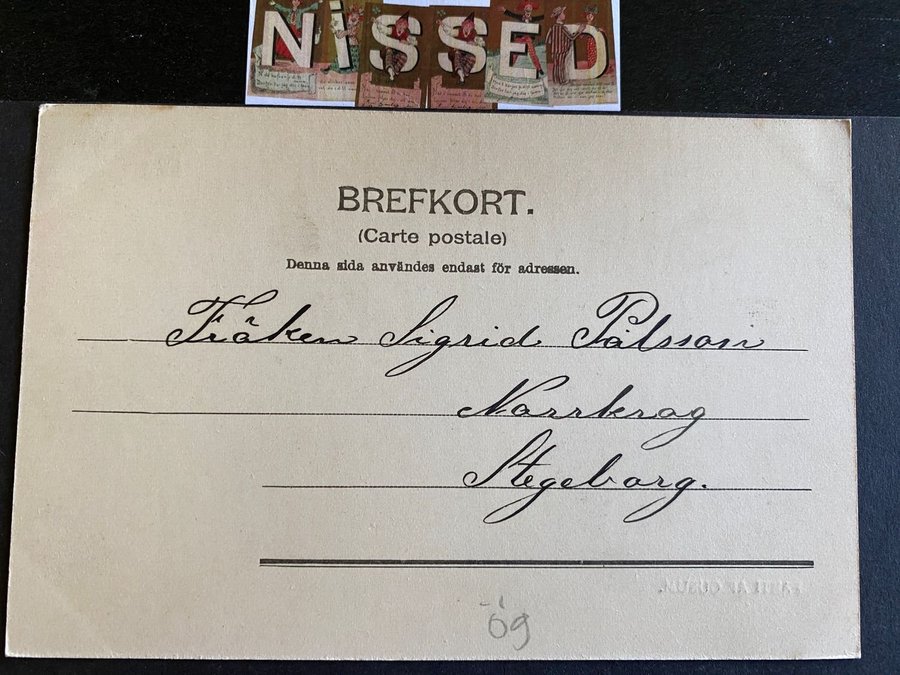 NISSED
BREFKORT.
(Carte postale)
Denna sida användes endast för adressen.
Fröken Sigrid Pålsson
Norrkrog
Stegeborg.
ög